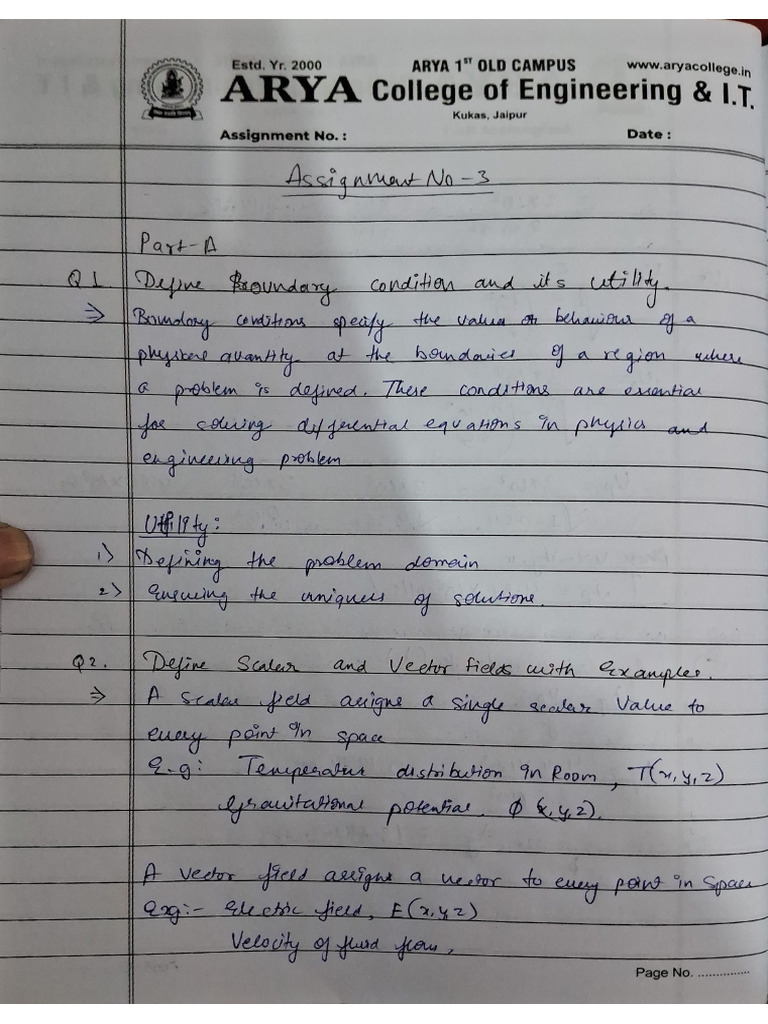 Estd. Yr. 2000
ARYA 1ST OLD CAMPUS
www.aryacollege.in
ARYA College of Engineering & I.T.
Kukas, Jaipur
Assignment No. :
Date :
Assignment No - 3
Part-A
Q1. Define Boundary condition and its utility.
⇒ Boundary conditions specify the value or behaviour of a
physical quantity at the boundaries of a region where
a problem is defined. These conditions are essential
for solving differential equations in physics and
engineering problem
Utility:
1) Defining the problem domain
2) Ensuring the uniquess of solutions.
Q2. Define Scalar and Vector fields with Examples.
⇒ A Scalar field assigns a single scalar value to
every point in space
E.g: Temperatur distribution in Room, T(x,y,z)
Gravitational potential, Φ (x,y,z).
A vector field assigns a vector to every point in space
Exg:- Electric field, E(x,y,z)
Velocity of fluid flow,
Page No. ...............